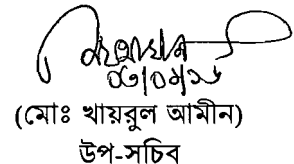 (মোঃ খায়রুল আমীন)
উপ-সচিব